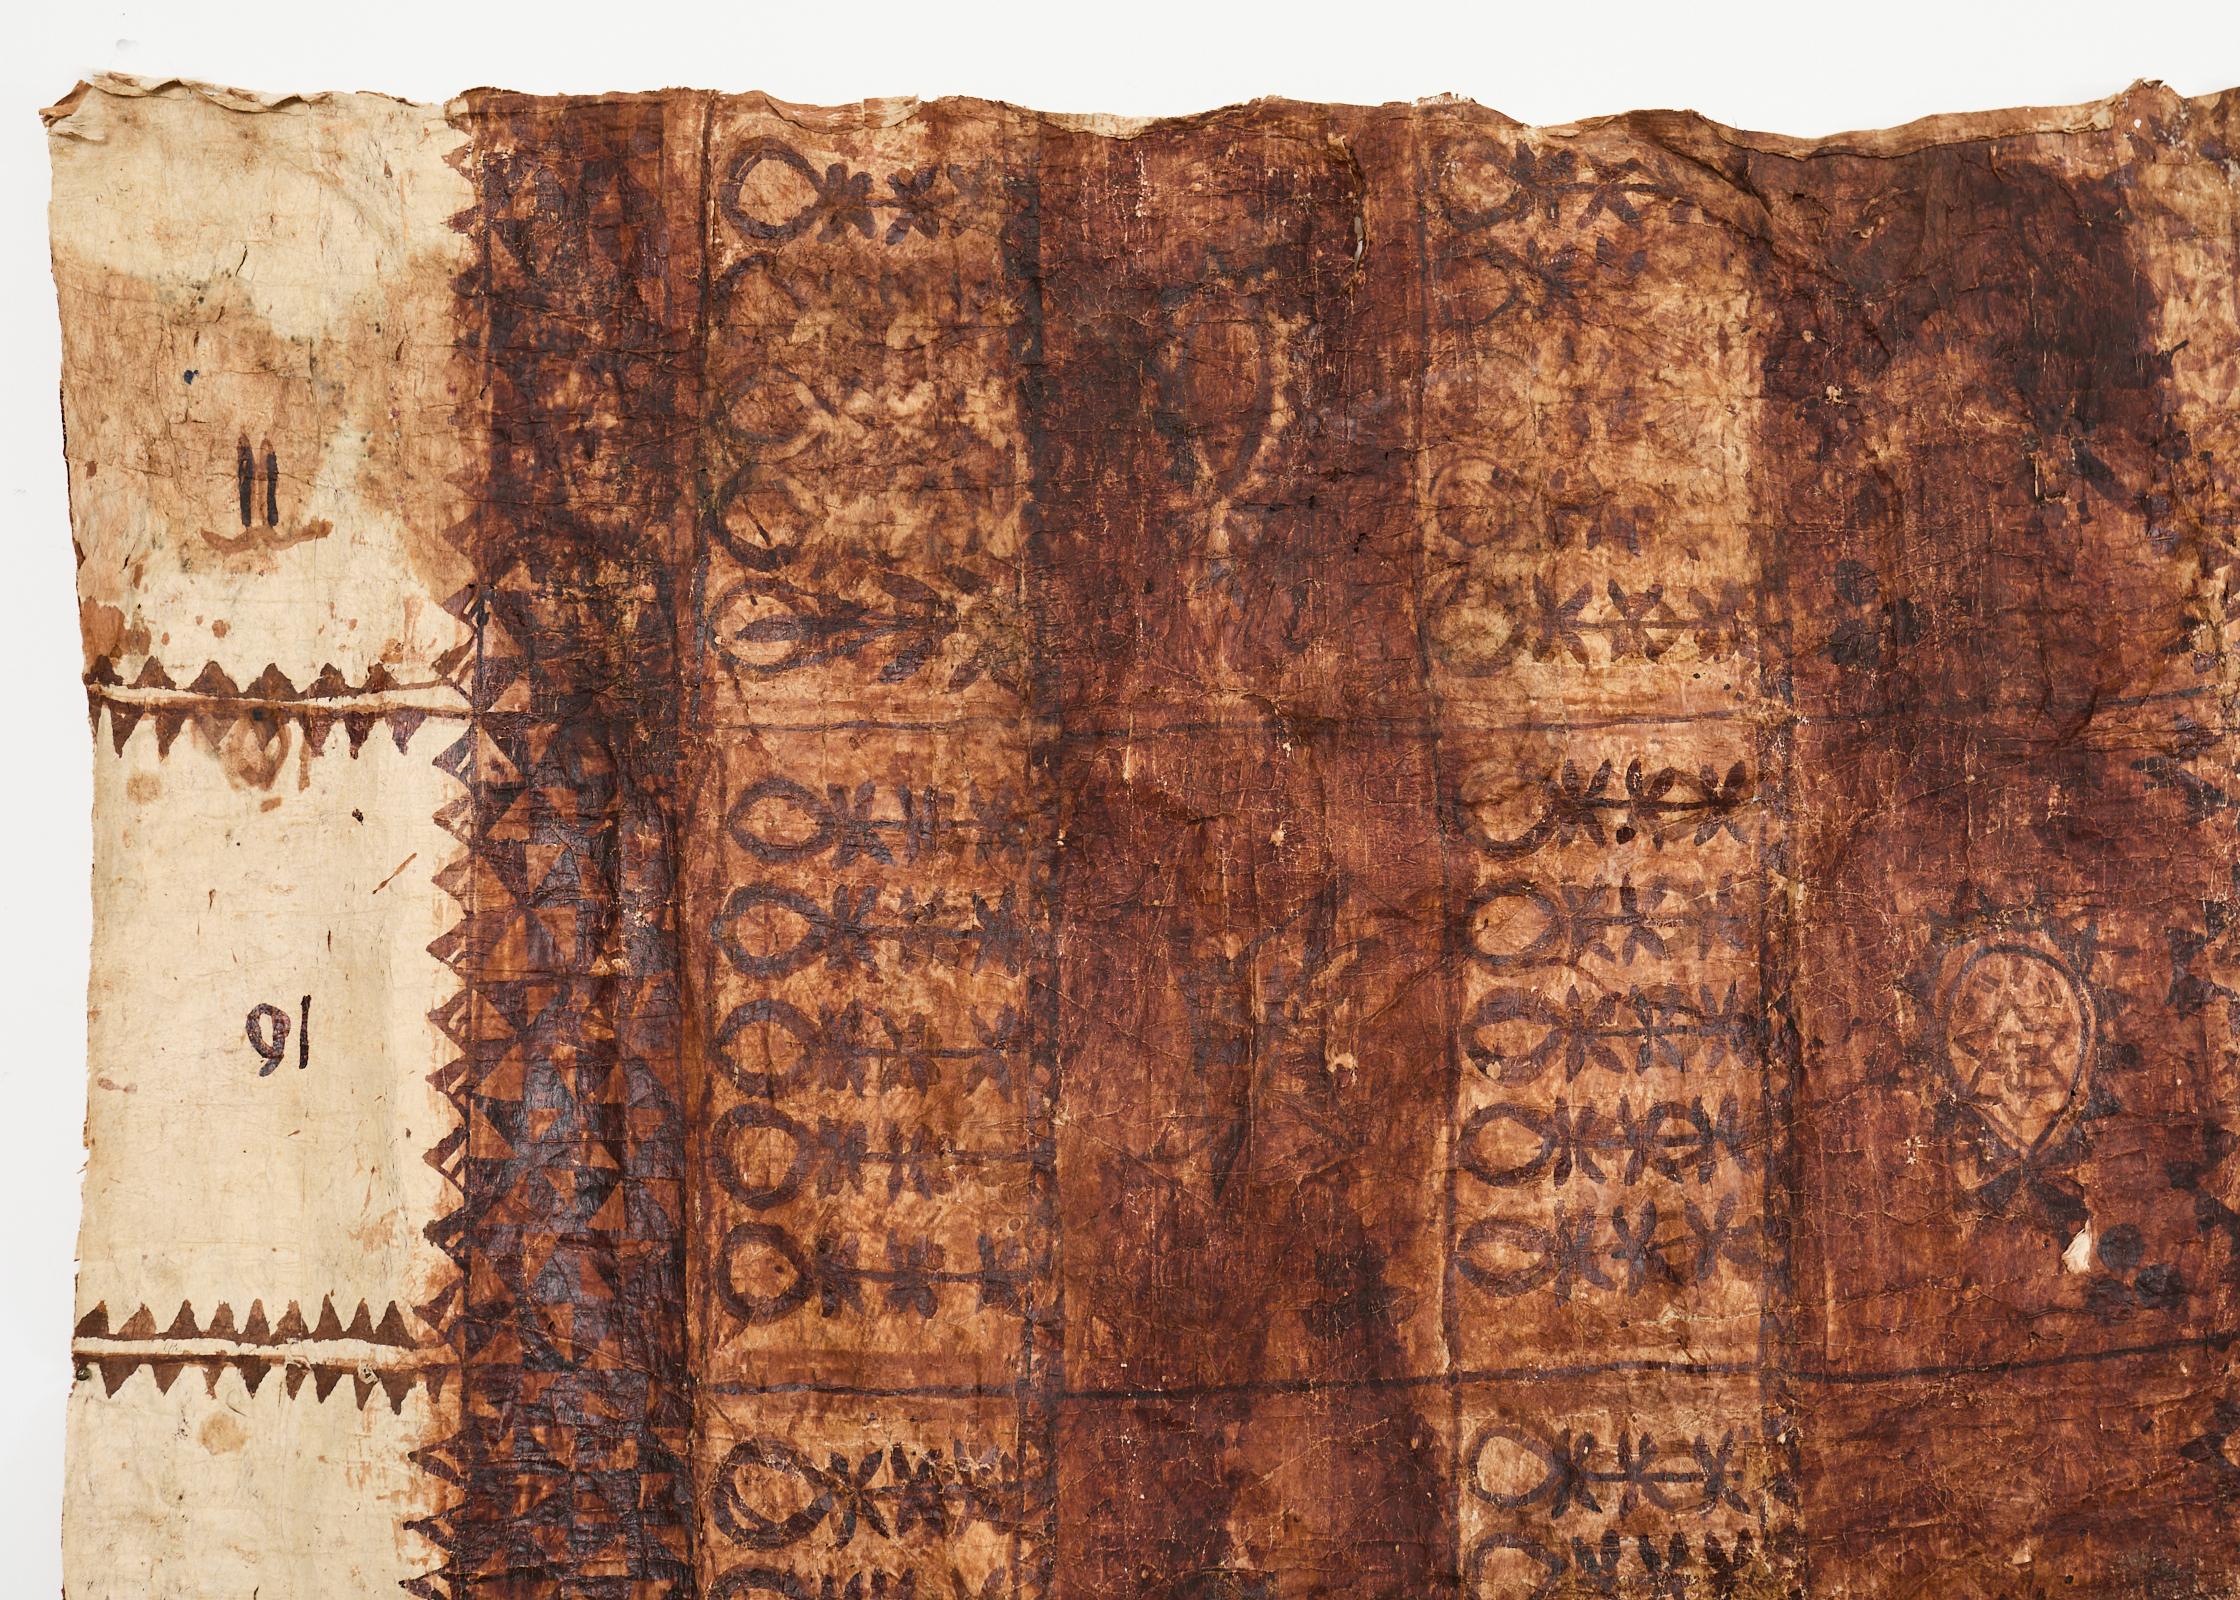 11
91